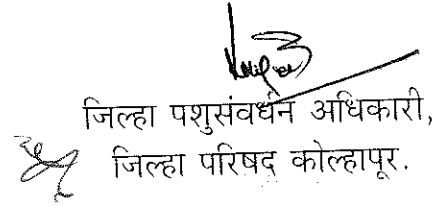 जिल्हा पशुसंवर्धन अधिकारी,
जिल्हा परिषद कोल्हापूर.